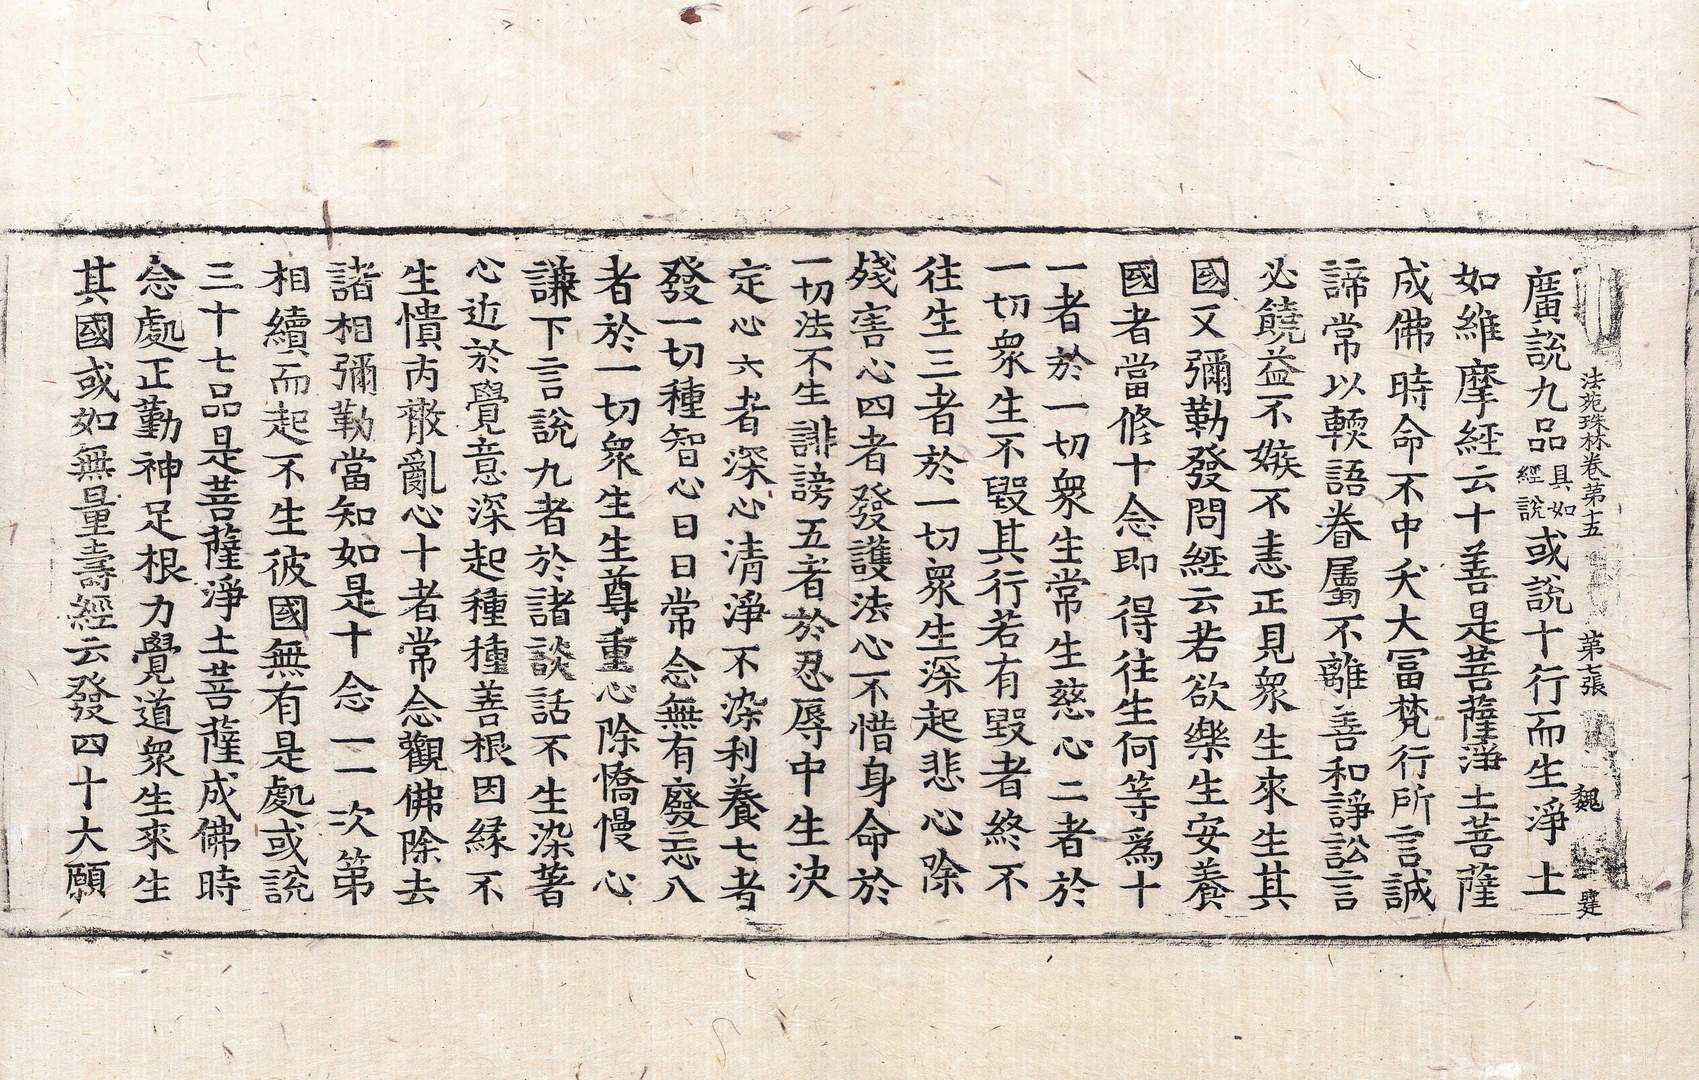 法苑珠林卷第十五 第七張 魏
廣說九品具如經說或說十行而生淨土
如維摩經云十善是菩薩淨土菩薩
成佛時命不中夭大冨梵行所言誠
諦常以輭語眷屬不離善和諍訟言
必饒益不嫉不恚正見衆生來生其
國又彌勒發問經云若欲樂生安養
國者當修十念即得往生何等爲十
一者於一切衆生常生慈心二者於
一切衆生不毀其行若有毀者終不
往生三者於一切衆生深起悲心除
殘害心四者發護法心不惜身命於
一切法不生誹謗五者於忍辱中生決
定心六者深心清淨不染利養七者
發一切種智心日日常念無有廢忘八
者於一切衆生生尊重心除憍慢心
謙下言說九者於諸談話不生染著
心近於覺意深起種種善根因緣不
生憒丙散亂心十者常念觀佛除去
諸相彌勒當知如是十念一一次第
相續而起不生彼國無有是處或說
三十七品是菩薩淨土菩薩成佛時
念處正勤神足根力覺道衆生來生
其國或如無量壽經云發四十大願